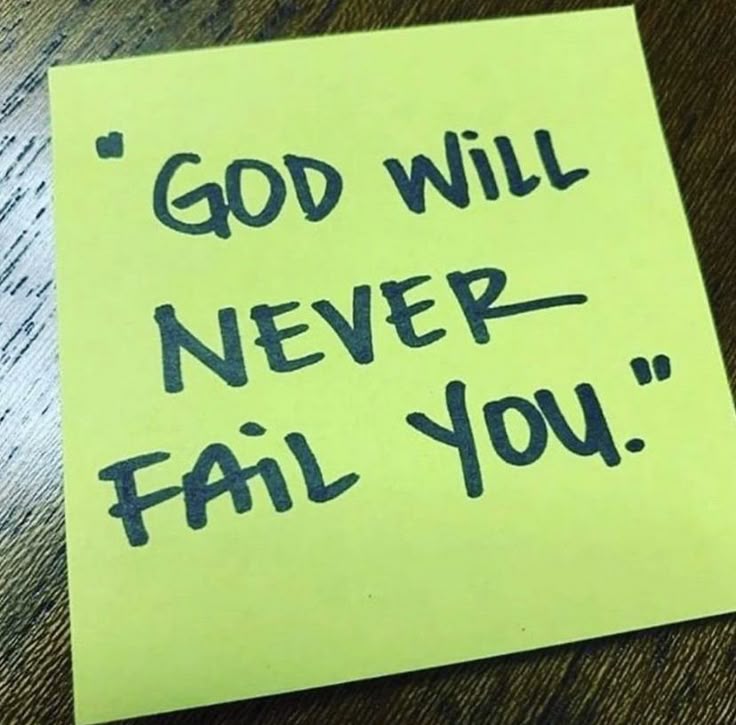 "GOD WiLL
NEVER
FAiL YOU."